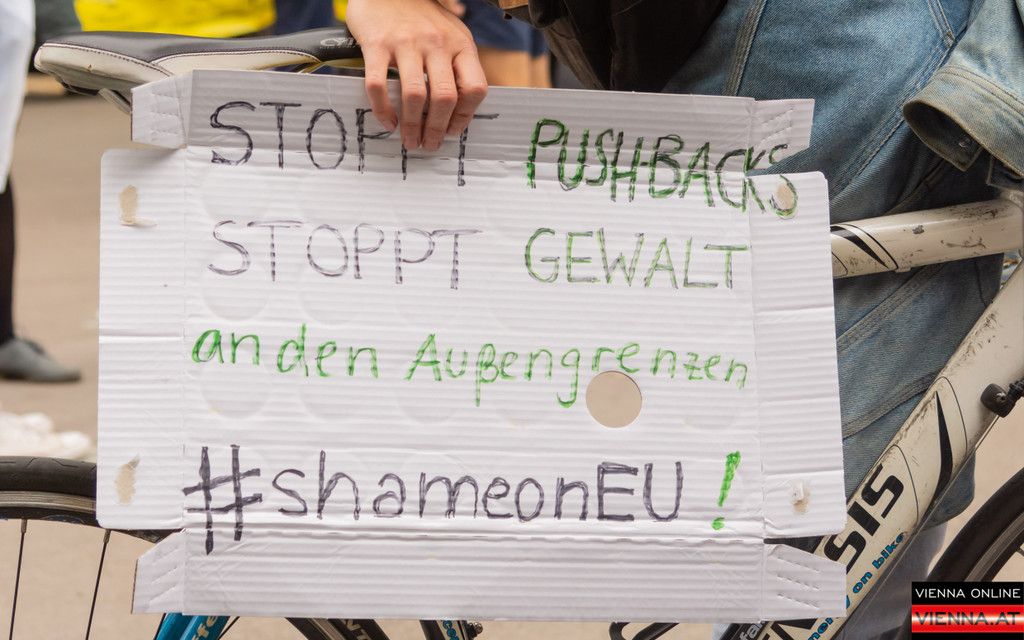 STOPPT PUSHBACKS
STOPPT GEWALT
an den Außengrenzen
#shameonEU!
SIS
on bike
VIENNA ONLINE
VIENNA.AT